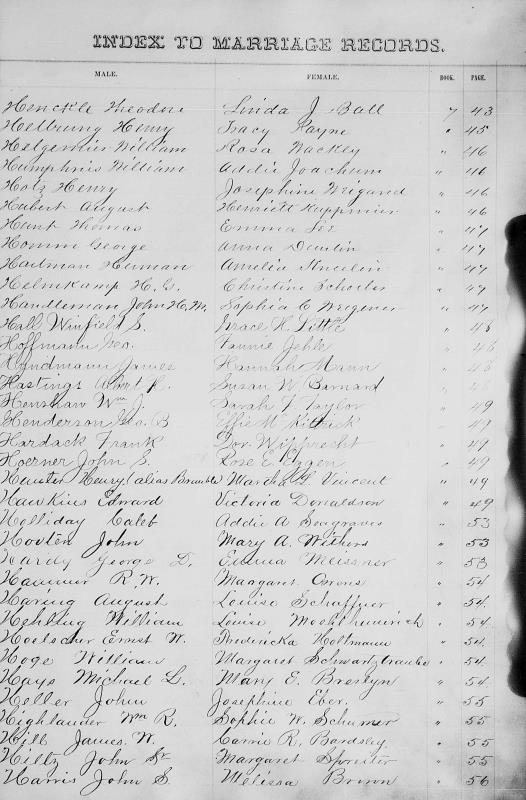 INDEX TO MARRIAGE RECORDS.
MALE. FEMALE. BOOK. PAGE.
Henckle Theodore Linda J. Ball 7 43
Helbrung Henry Tracy Payne " 45
William Rosa Wackley " 46
Humphris William Addie Joachum " 46
Hotz Henry Josephine Weigand " 46
Hubert August " 46
Hunt Thomas Emma Lee " 47
Homm George Anna " 47
Hartman Herman Amelia " 47
Helmkamp H. G. Christine " 47
Handleman John H. W. Sophia C. " 47
Hall Winfield S. Grace H. Tittle " 48
Hoffmann Geo. Fannie Jehle " 48
Hyndmann James Hannah Mann " 48
Hastings Susan W. Barnard " 48
Henshaw Wm J. Sarah F. Taylor " 49
Henderson Geo. B Effie M Kittrick " 49
Hardack Frank Wipprecht " 49
Hoerner John S. Rose E. Eggen " 49
Henry (alias Bramble) Martha F. Vincent " 49
Hawkins Edward Victoria Donaldson " 49
Holliday Caleb Addie A Seagraves " 53
Hooten John Mary A. Withers " 53
Hardy George D. Emma Meissner " 53
Hammer R. W. Maagaret Owens " 54
Haring August Louise Schaffner " 54.
Hehling William Louise " 54.
Hoelscher Ernst W. Fredericka Holtmann " 54.
Hoge William Margaret " 54
Hays Michael L. Mary E. Breslyn " 54
Heller John Josephine Eber. " 55
Highlander Wm R. Sophie W. Schumer " 55
Hill James. W. Carrie R. Bardsley. " 55
Hiltz John Sr Margaret " 55
Harris John S Melissa Brown " 56